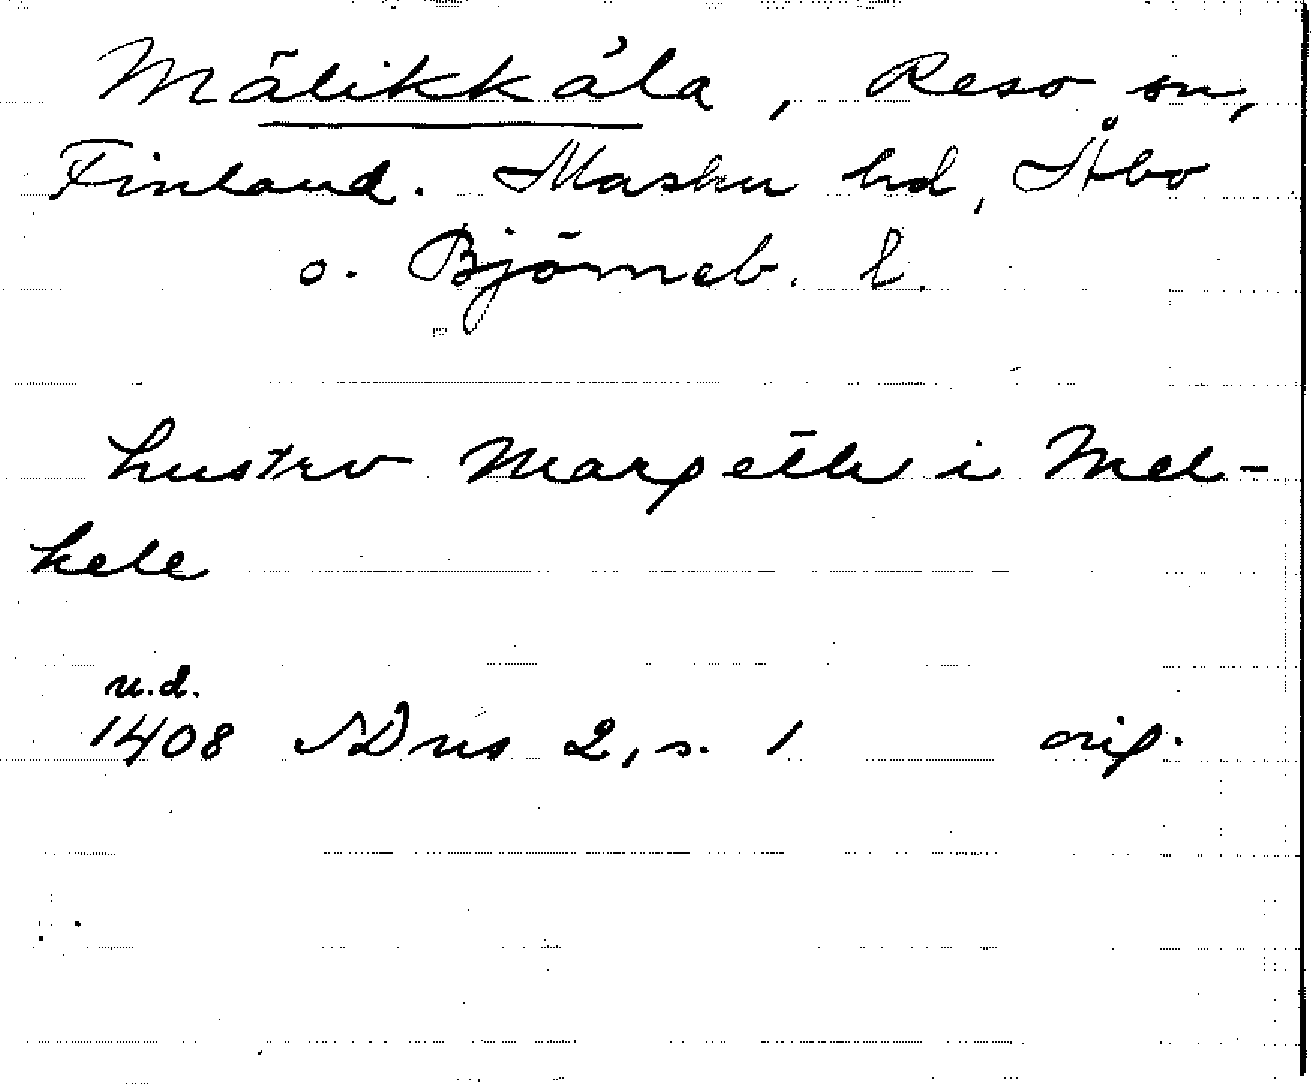 Mälikkälä, Reso sn,
Finland. Masku hd, Åbo
o. Björneb. l.
hustro Margetthe i Mel-
kele
u.d.
1408 SDns 2, s. 1 orig.